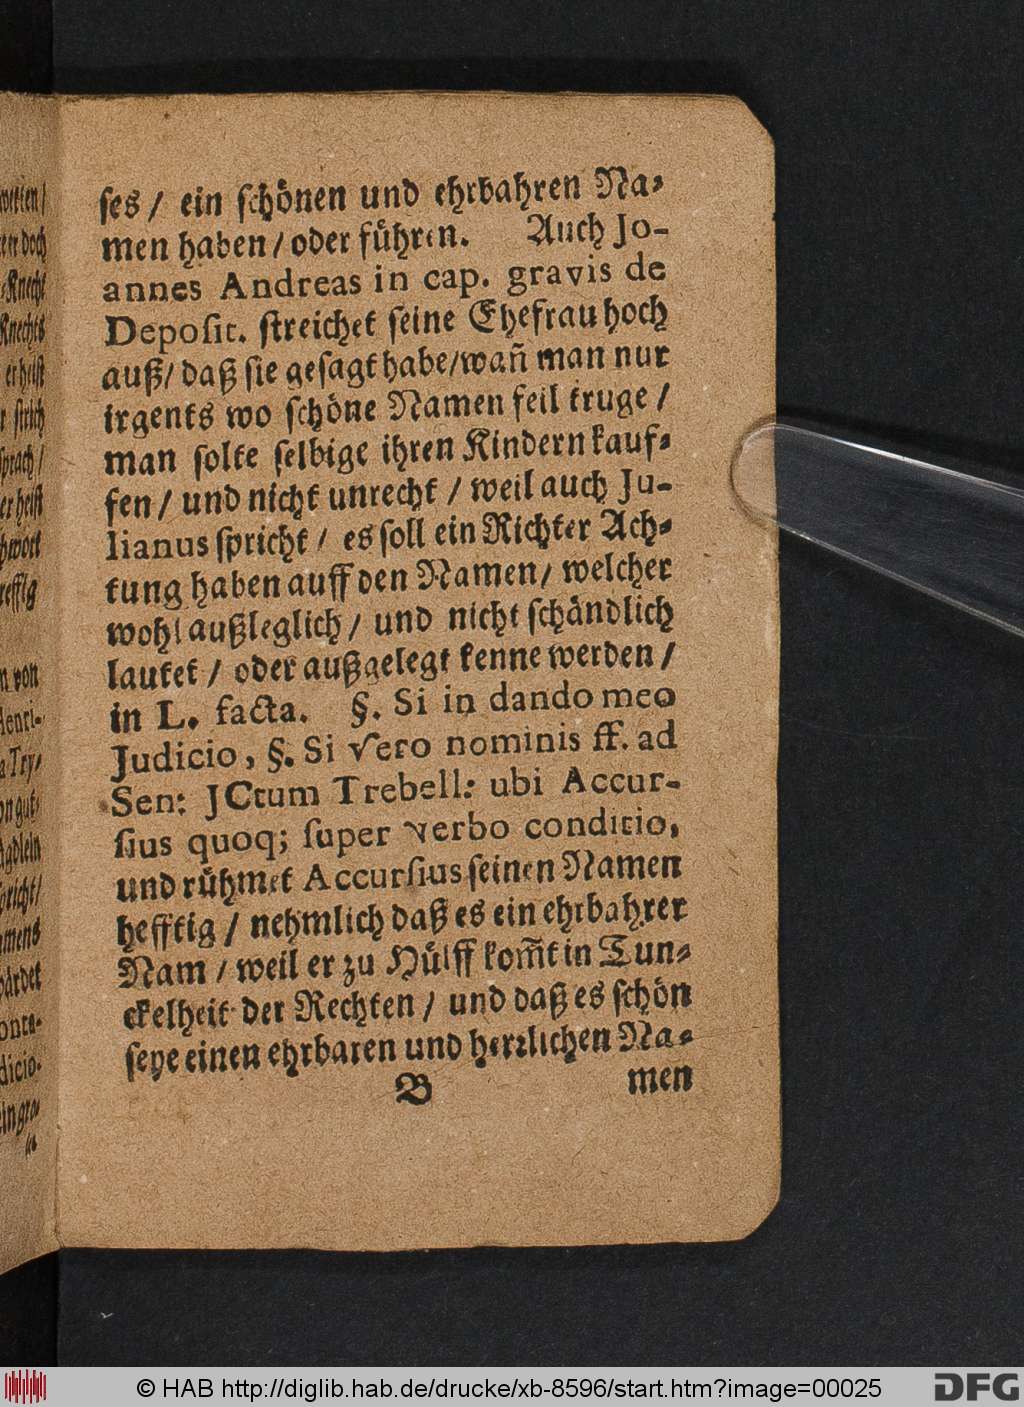 ſes / ein ſchönen und ehrbahren Na-
men haben / oder führen. Auch Jo-
annes Andreas in cap. gravis de
Depoſit. ſtreichet ſeine Ehefrau hoch
auß / daß ſie geſagt habe / wañ man nur
irgents wo ſchöne Namen feil truge /
man ſolte ſelbige ihren Kindern kauf-
fen / und nicht unrecht / weil auch Ju-
lianus ſpricht / es ſoll ein Richter Ach-
tung haben auff den Namen / welcher
wohl außleglich / und nicht ſchändlich
lautet / oder außgelegt kenne werden /
in L. facta. §. Si in dando meo
Judicio, §. Si vero nominis ff. ad
Sen: JCtum Trebell: ubi Accur-
ſius quoq; ſuper verbo conditio,
und rühmet Accurſius ſeinen Namen
hefftig / nehmlich daß es ein ehrbahrer
Nam / weil er zu Hülff kom̃t in Tun-
ckelheit der Rechten / und daß es ſchön
ſeye einen ehrbaren und herꝛlichen Na-
B men
© HAB http://diglib.hab.de/drucke/xb-8596/start.htm?image=00025
DFG